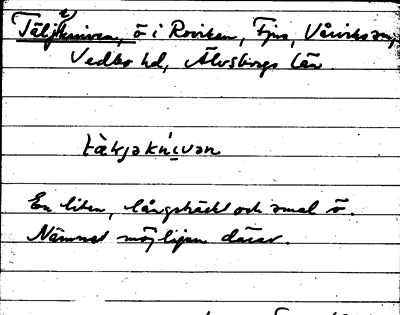 Täljekniven, ö i Roviken, Fjus, Vårviks sn,
Vedbo hd, Älvsborgs län.
täljəkni̱vən
En liten, långsträckt och smal ö.
Namnet möjligen därav.